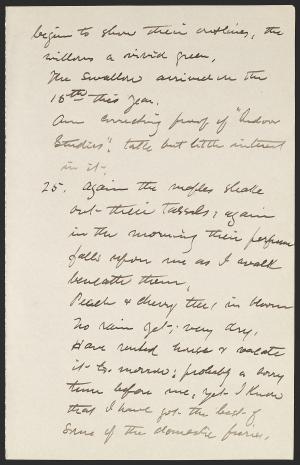 begin to show their outlines, the
willows a vivid green,
The Swallow arrived on the
15th this year.
Am correcting proof of "Indoor
Studies", take but little interest
in it.
25. Again the maples shake
out their tassels; again
in the morning their perfume
falls upon me as I walk
beneath them.
Peach & cherry trees in bloom
No rain yet; very dry.
Have rented house & vacate
it to-morrow; probably a sorry
time before me, yet I know
that I have got the best of
some of the domestic furies.